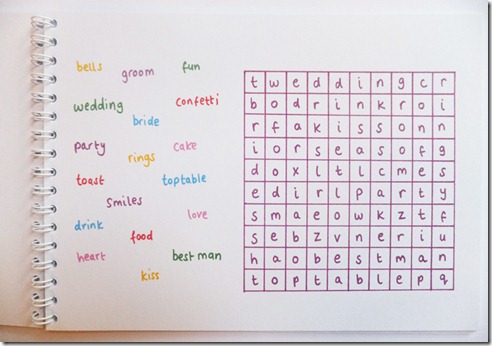 bells groom fun
wedding confetti
bride
party rings cake
toast toptable
smiles
drink love
food
heart best man
kiss
t w e d d i n g c r
b o d r i n k r o i
r f a k i s s o n n
i o r s e a s o f g
d o x l t l c m e s
e d i r l p a r t y
s m a e o w k z t f
s e b z v n e r i u
h a o b e s t m a n
t o p t a b l e p q